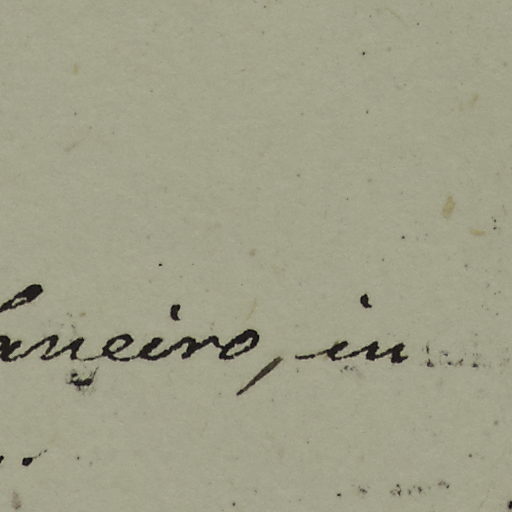 Janeiro, in